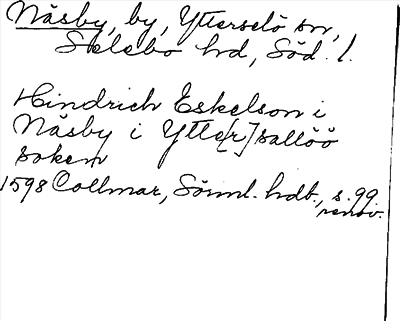 Näsby, by, Ytterselö sn,
Selebo hd, Söd. l.
Hindrich Eskelson i
Näsby i Ytte[r]sallöö
soken
1598 Collmar, Sörml. hdb., s. 99
renov.